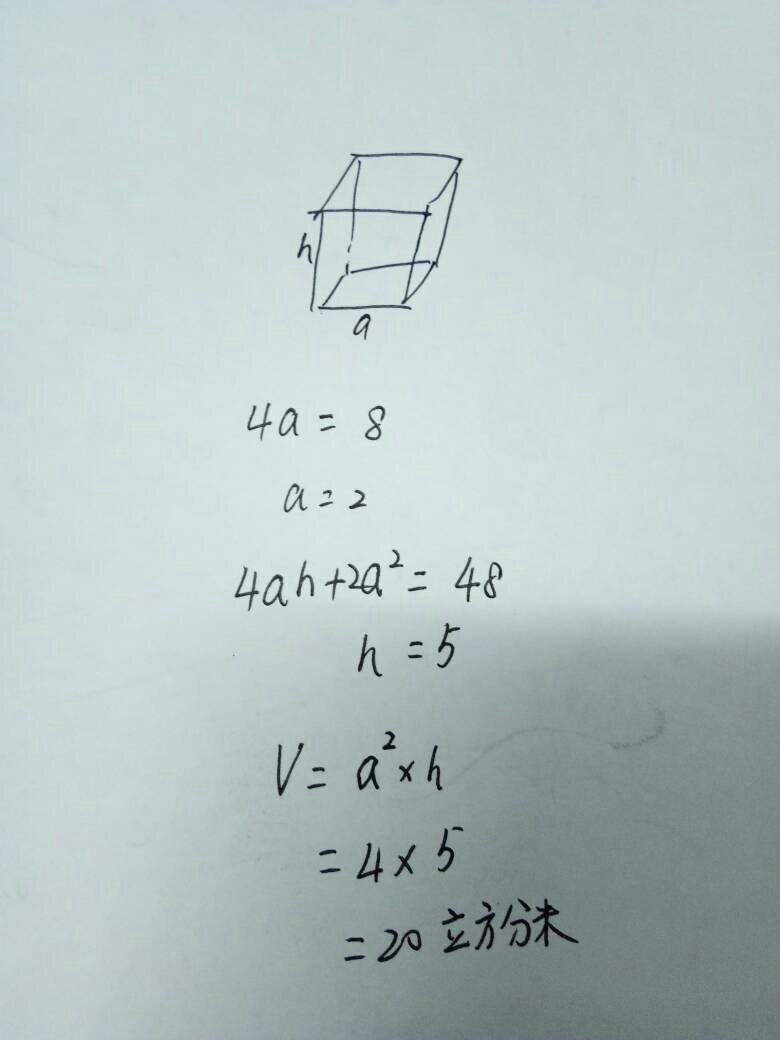 h
a
4a = 8
a = 2
4ah+2a² = 48
h = 5
V = a² × h
= 4 × 5
= 20 立方分米